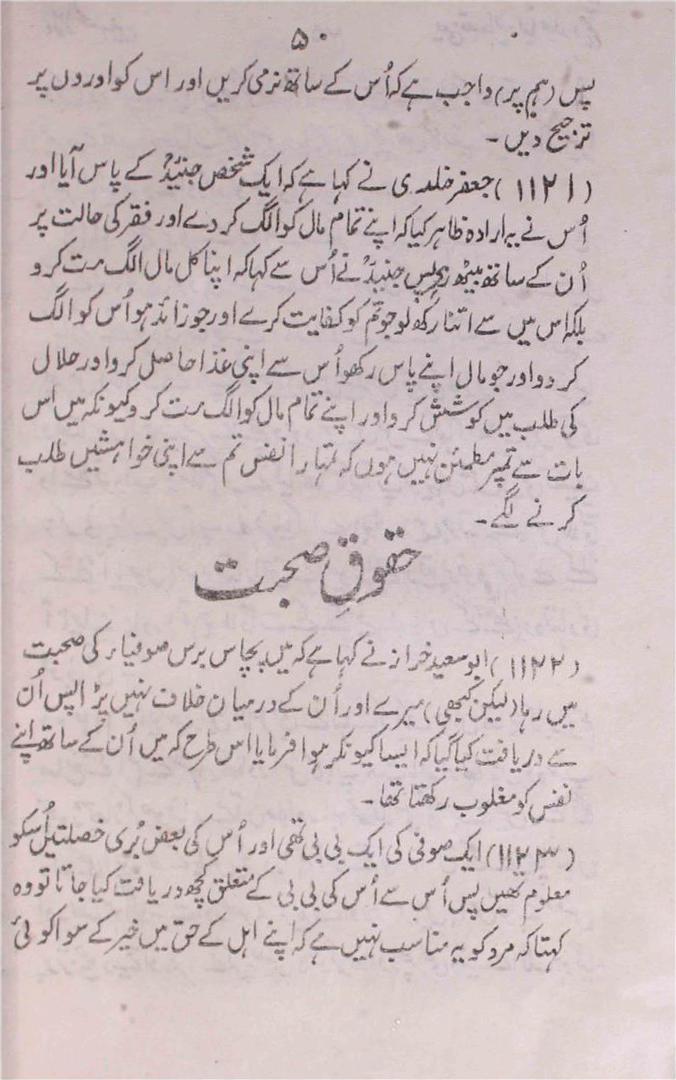 ۵۰
پس (ہم پر) واجب ہے کہ اُس کے ساتھ نرمی کریں اور اس کو اوروں پر
ترجیح دیں۔
(۱۱۲۱) جعفر خلدی نے کہا ہے کہ ایک شخص جنیدؒ کے پاس آیا اور
اُس نے یہ ارادہ ظاہر کیا کہ اپنے تمام مال کو الگ کر دے اور فقر کی حالت پر
اُن کے ساتھ بیٹھ رہے پس جنیدؒ نے اُس سے کہا کہ اپنا کل مال الگ مت کرو
بلکہ اس میں سے اتنا رکھ لو جو تم کو کفایت کرے اور جو زائد ہو اُس کو الگ
کر دو اور جو مال اپنے پاس رکھو اُس سے اپنی غذا حاصل کرو اور حلال
کی طلب میں کوشش کرو اور اپنے تمام مال کو الگ مت کرو کیونکہ میں اس
بات سے تمپر مطمئن نہیں ہوں کہ تمہارا نفس تم سے اپنی خواہشیں طلب
کرنے لگے۔
حقوقِ صحبت
(۱۱۲۲) ابو سعید خراز نے کہا ہے کہ میں پچاس برس صوفیاء کی صحبت
میں رہا (لیکن کبھی) میرے اور اُن کے درمیان خلاف نہیں پڑا پس اُن
سے دریافت کیا گیا کہ ایسا کیونکر ہوا فرمایا اس طرح کہ میں اُن کے ساتھ اپنے
نفس کو مغلوب رکھتا تھا۔
(۱۱۲۳) ایک صوفی کی ایک بی بی تھی اور اُس کی بعض بُری خصلتیں اُسکو
معلوم تھیں پس اُس سے اُس کی بی بی کے متعلق کچھ دریافت کیا جاتا تو وہ
کہتا کہ مرد کو یہ مناسب نہیں ہے کہ اپنے اہل کے حق میں خیر کے سوا کوئی